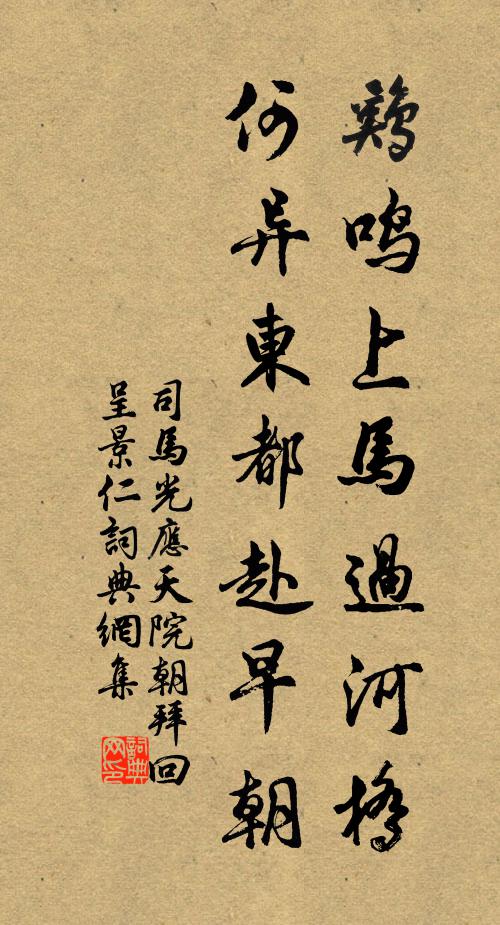 鷄鳴上馬過河橋
何异東都赴早朝
司馬光應天院朝拜回
呈景仁詞典網集
詞典网印